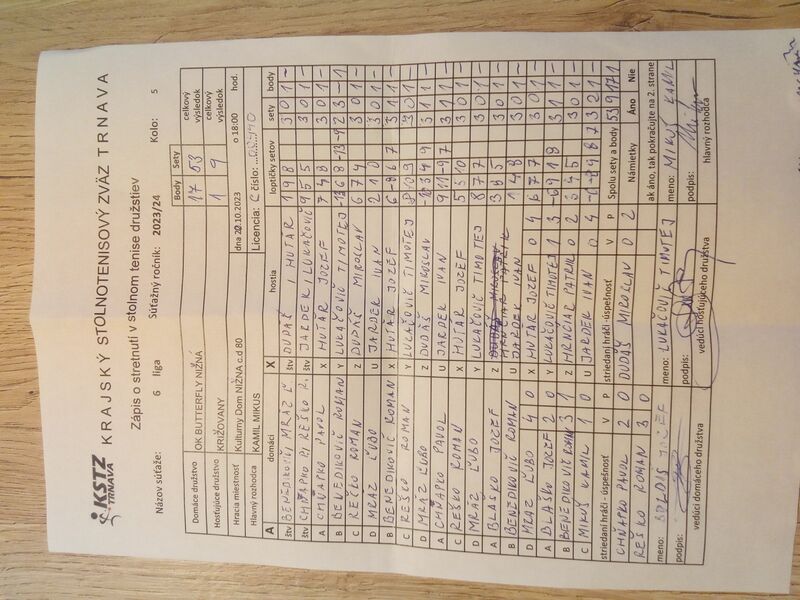 KSTZ TRNAVA
KRAJSKÝ STOLNOTENISOVÝ ZVÄZ TRNAVA
Zápis o stretnutí v stolnom tenise družstiev
Názov súťaže: 6 liga Súťažný ročník: 2023/24 Kolo: 5
Body Sety
Domáce družstvo OK BUTTERFLY NIŽNÁ 17 53 celkový výsledok
Hosťujúce družstvo KRIŽOVANY 1 9 celkový výsledok
Hracia miestnosť Kulturny Dom NIŽNA c.d 80 dna 20.10.2023 o 18:00 hod.
Hlavný rozhodca KAMIL MIKUS Licencia: C číslo:
A domáci X hostia loptičky setov sety body
štv BENEDIKOVIČ, MRÁZ Ľ. štv DUDÁŠ, HUTÁR 1 9 8 3 0 1 -
štv CHŇAPKO P, REŠKO R. štv JARDEK, LUKAČOVIČ 9 5 5 3 0 1 -
A CHŇAPKO PAVOL X HUTÁR JOZEF 7 4 8 3 0 1 -
B BENEDIKOVIČ ROMAN Y LUKAČOVIČ TIMOTEJ 2 3 - 1
C REŠKO ROMAN Z DUDÁŠ MIROSLAV 6 7 4 3 0 1 -
D MRÁZ ĽUBO U JARDEK IVAN 2 1 0 3 0 1 -
B BENEDIKOVIČ ROMAN X HUTÁR JOZEF 6 -8 6 7 3 1 1 -
C REŠKO ROMAN Y LUKAČOVIČ TIMOTEJ 3 0 1 -
D MRÁZ ĽUBO Z DUDÁŠ MIROSLAV 3 1 1 -
A CHŇAPKO PAVOL U JARDEK IVAN 9 11 -9 7 3 1 1 -
C REŠKO ROMAN X HUTÁR JOZEF 5 3 10 3 0 1 -
D MRÁZ ĽUBO Y LUKAČOVIČ TIMOTEJ 8 7 7 3 0 1 -
A BLAŠKO JOZEF Z 3 8 5 3 0 1 -
B BENEDIKOVIČ ROMAN U JARDEK IVAN 1 4 8 3 0 1 -
D MRÁZ ĽUBO 4 0 X HUTÁR JOZEF 0 4 6 7 7 3 0 1 -
A BLAŠKO JOZEF 2 0 Y LUKAČOVIČ TIMOTEJ 1 3 3 1 -
B BENEDIKOVIČ ROMAN 3 1 Z HRNČIAR PATRIK 0 2 3 4 5 3 0 1 -
C MIKUŠ KAMIL 1 0 U JARDEK IVAN 0 4 3 2 1 -
striedaní hráči -úspešnosť V P striedaní hráči -úspešnosť V P Spolu sety a body 53 9 17 1
CHŇAPKO PAVOL 2 0 DUDÁŠ MIROSLAV 0 2 Námietky Áno Nie
REŠKO ROMAN 3 0 ak áno, tak pokračujte na 2. strane
meno: meno: LUKAČOVIČ TIMOTEJ meno: MIKUŠ KAMIL
podpis: podpis: podpis:
vedúci domáceho družstva vedúci hosťujúceho družstva hlavný rozhodca